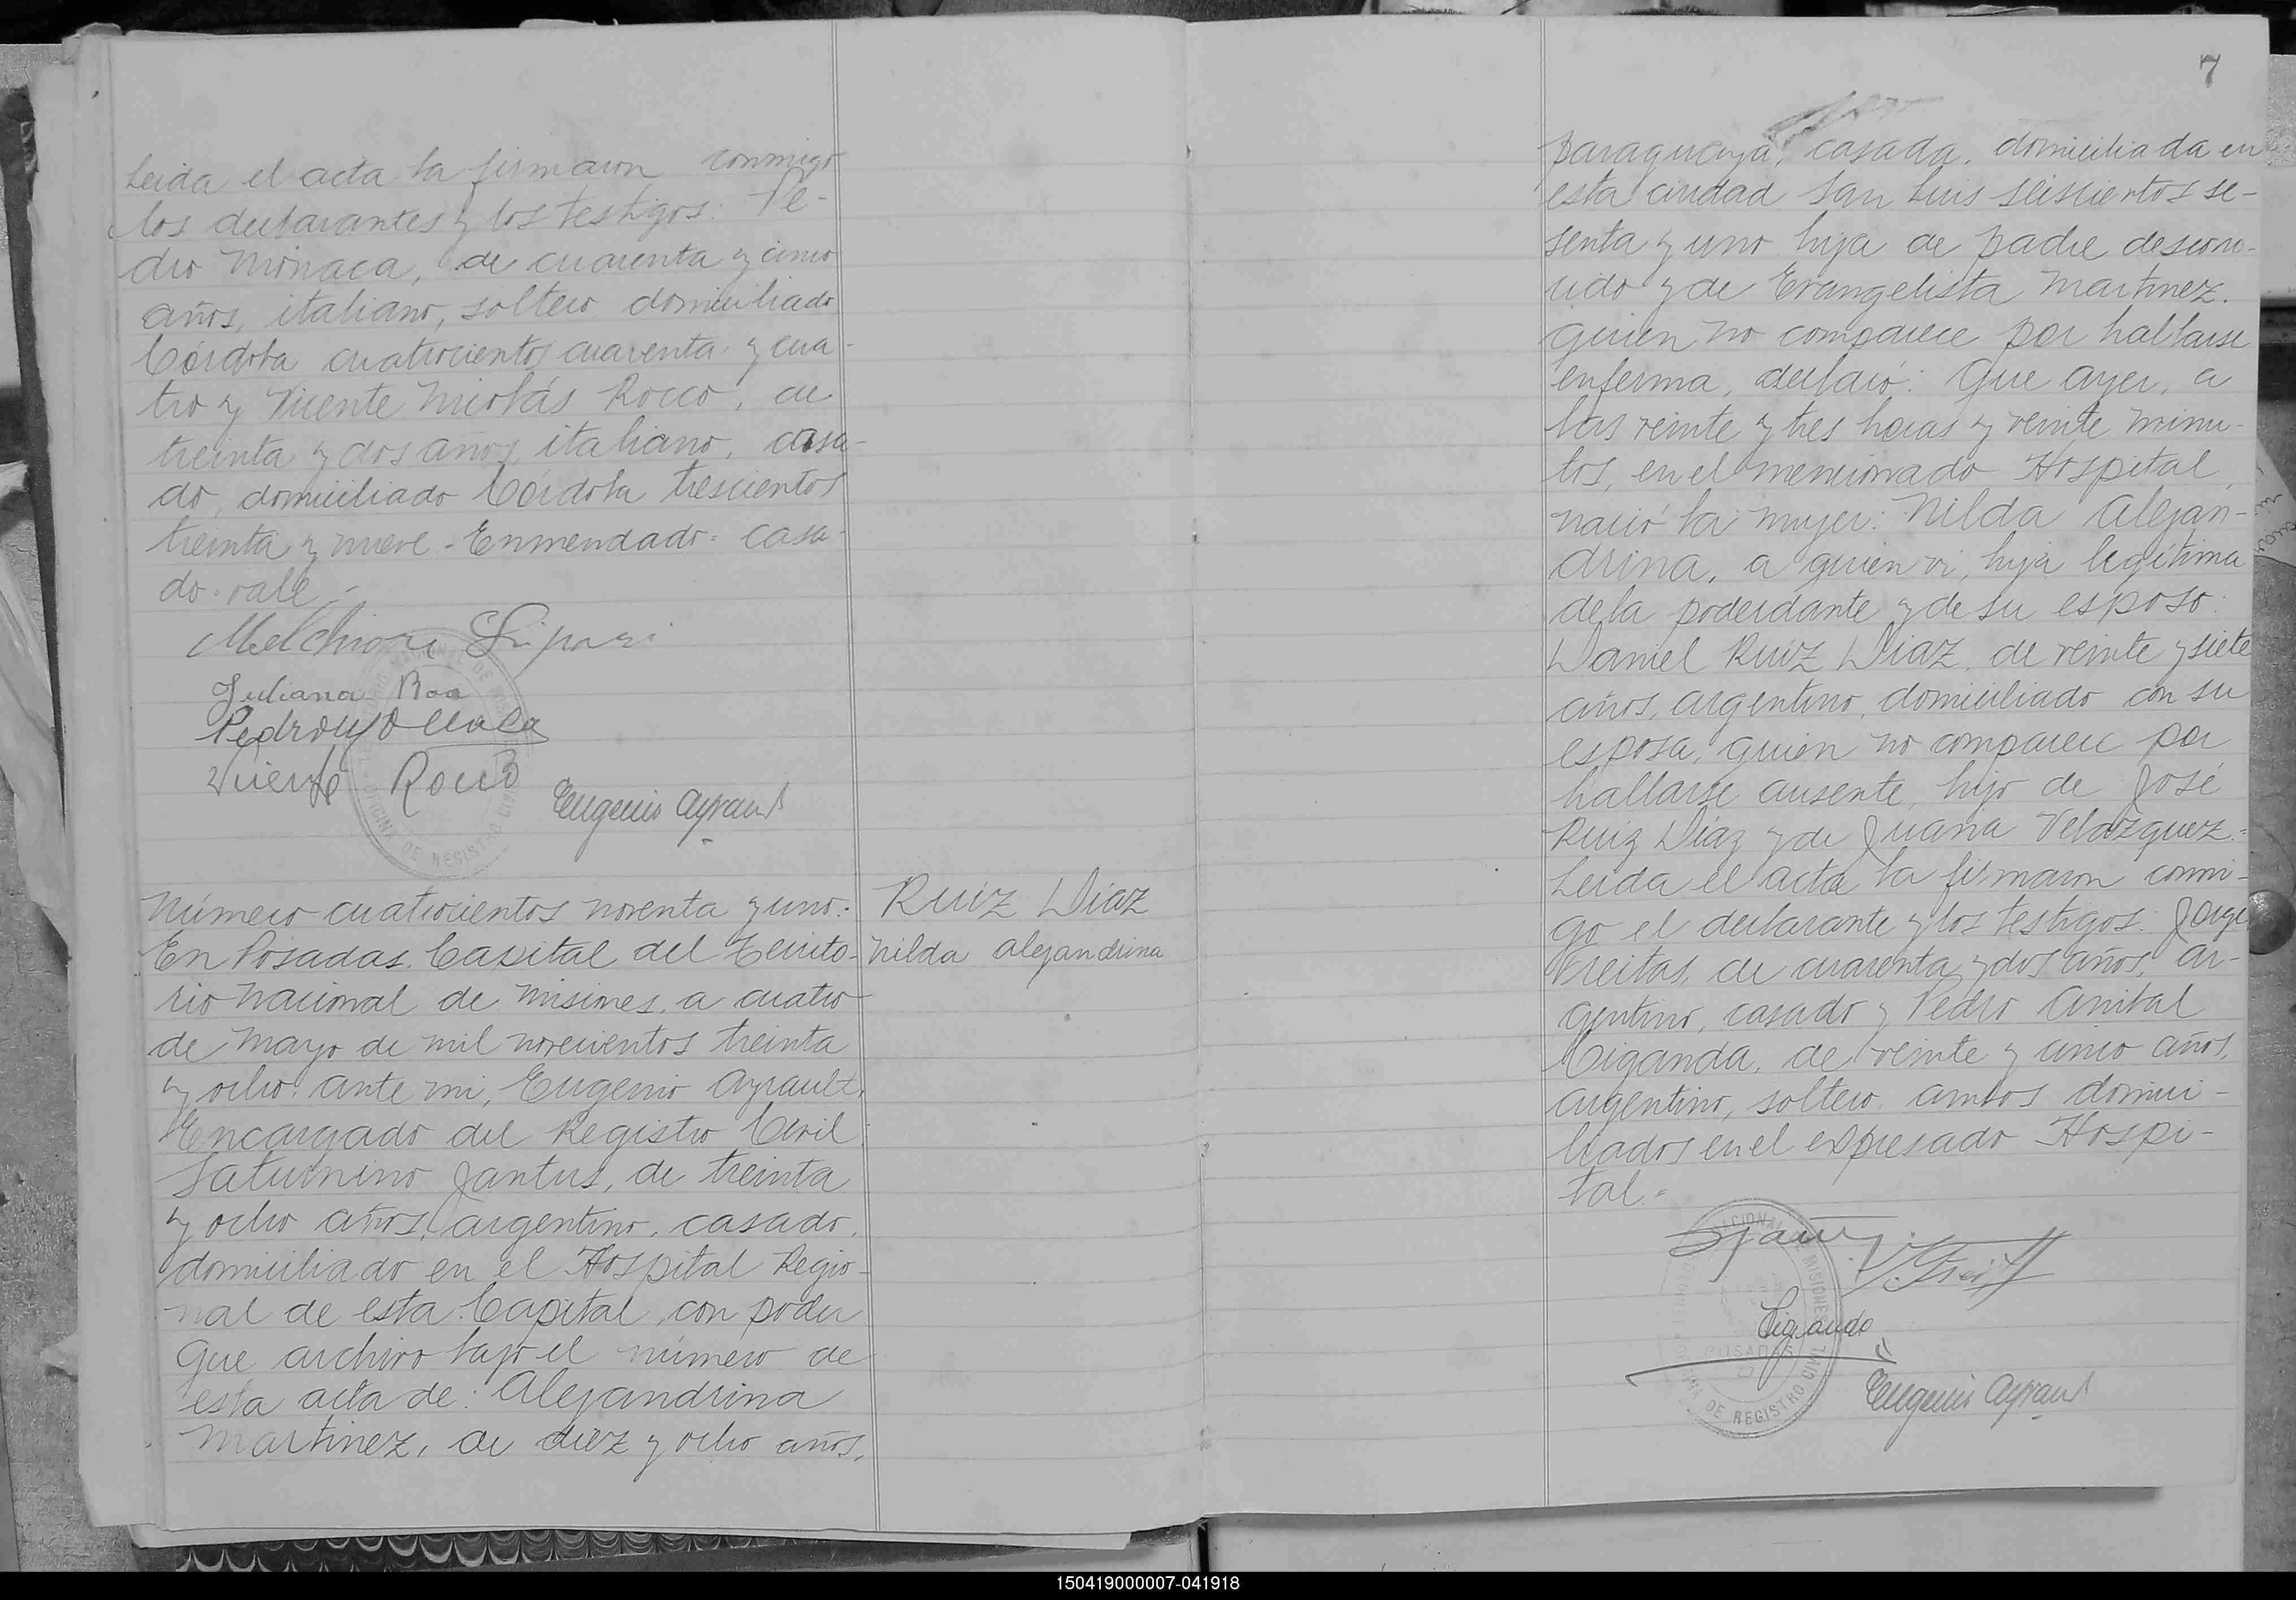 Leida el acta la firmaron conmigo
los declarantes y los testigos: Pe-
dro Mónaca, de cuarenta y cinco
años, italiano, soltero domiciliado
Córdoba cuatrocientos cuarenta y cua-
tro y Vicente Nicolás Rocco, de
treinta y dos años, italiano, casa-
do, domiciliado Córdoba trescientos
treinta y nueve - Enmendado = casa-
do. vale -
Melchiore Lipari
Juliana Roa
Pedro
Vicente Rocco
Eugenio Ayrault
OFICINA DE REGISTRO CIVIL
Número cuatrocientos noventa y uno:
En Posadas, Capital del Territo-
rio Nacional de Misiones, a cuatro
de Mayo de mil novecientos treinta
y ocho, ante mi, Eugenio Ayrault,
Encargado del Registro Civil,
Saturnino Jantus, de treinta
y ocho años, argentino, casado,
domiciliado en el Hospital Regio-
nal de esta Capital, con poder
que archivo bajo el número de
esta acta de: Alejandrina
Martinez, de diez y ocho años,
Ruiz Diaz
Nilda Alejandrina
7
paraguaya, casada, domiciliada en
esta ciudad San Luis seiscientos se-
senta y uno hija de padre descono-
cido y de Evangelista Martinez.
quien no comparece por hallarse
enferma, declaró: Que ayer, a
las veinte y tres horas y veinte minu-
tos, en el mencionado Hospital,
nació la mujer: Nilda Alejan-
drina, a quien vi, hija legítima
de la poderdante y de su esposo:
Daniel Ruiz Diaz, de veinte y siete
años, argentino, domiciliado con su
esposa, quien no comparece por
hallarse ausente, hijo de José
Ruiz Diaz y de Juana Velazquez.=
Leida el acta la firmaron conmi-
go el declarante y los testigos: Jorge
Freitas, de cuarenta y dos años, ar-
gentino, casado y Pedro Anibal
Ciganda, de veinte y cinco años,
argentino, soltero, ambos domici-
liados en el expresado Hospi-
tal.=
Ciganda
Eugenio Ayrault
NACIONAL MISIONES
POSADAS
DE REGISTRO CIVIL
150419000007-041918